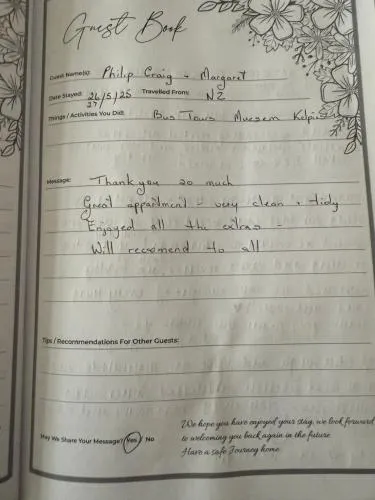 Guest Book
Guest Name(s): Philip Craig + Margaret
Date Stayed: 26/5/25 Travelled From: NZ
27
Things / Activities You Did: Bus Tours Muesem Kelpis
Message: Thank you so much
Great appartment - very clean + tidy
Enjoyed all the extras -
Will recomend to all
Tips / Recommendations For Other Guests:
We hope you have enjoyed your stay, we look forward
May We Share Your Message? Yes / No to welcoming you back again in the future.
Have a safe Journey home